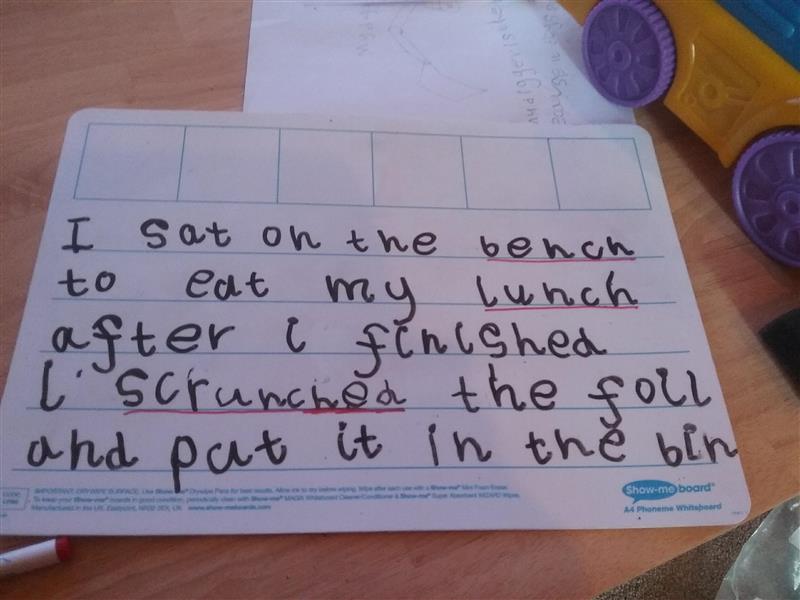 I sat on the bench
to eat my lunch
after i finished
i scrunched the foil
and put it in the bin
IMPORTANT: DRYWIPE SURFACE. Use Show-me® Drywipe Pens for best results. Allow ink to dry before wiping. Wipe after each use with a Show-me® Mini Foam Eraser.
To keep your Show-me® boards in good condition, periodically clean with Show-me® MAGIX Whiteboard Cleaner/Conditioner & Show-me® Super Absorbent WIZARD Wipes.
www.show-meboards.com
Show-me board®
A4 Phoneme Whiteboard